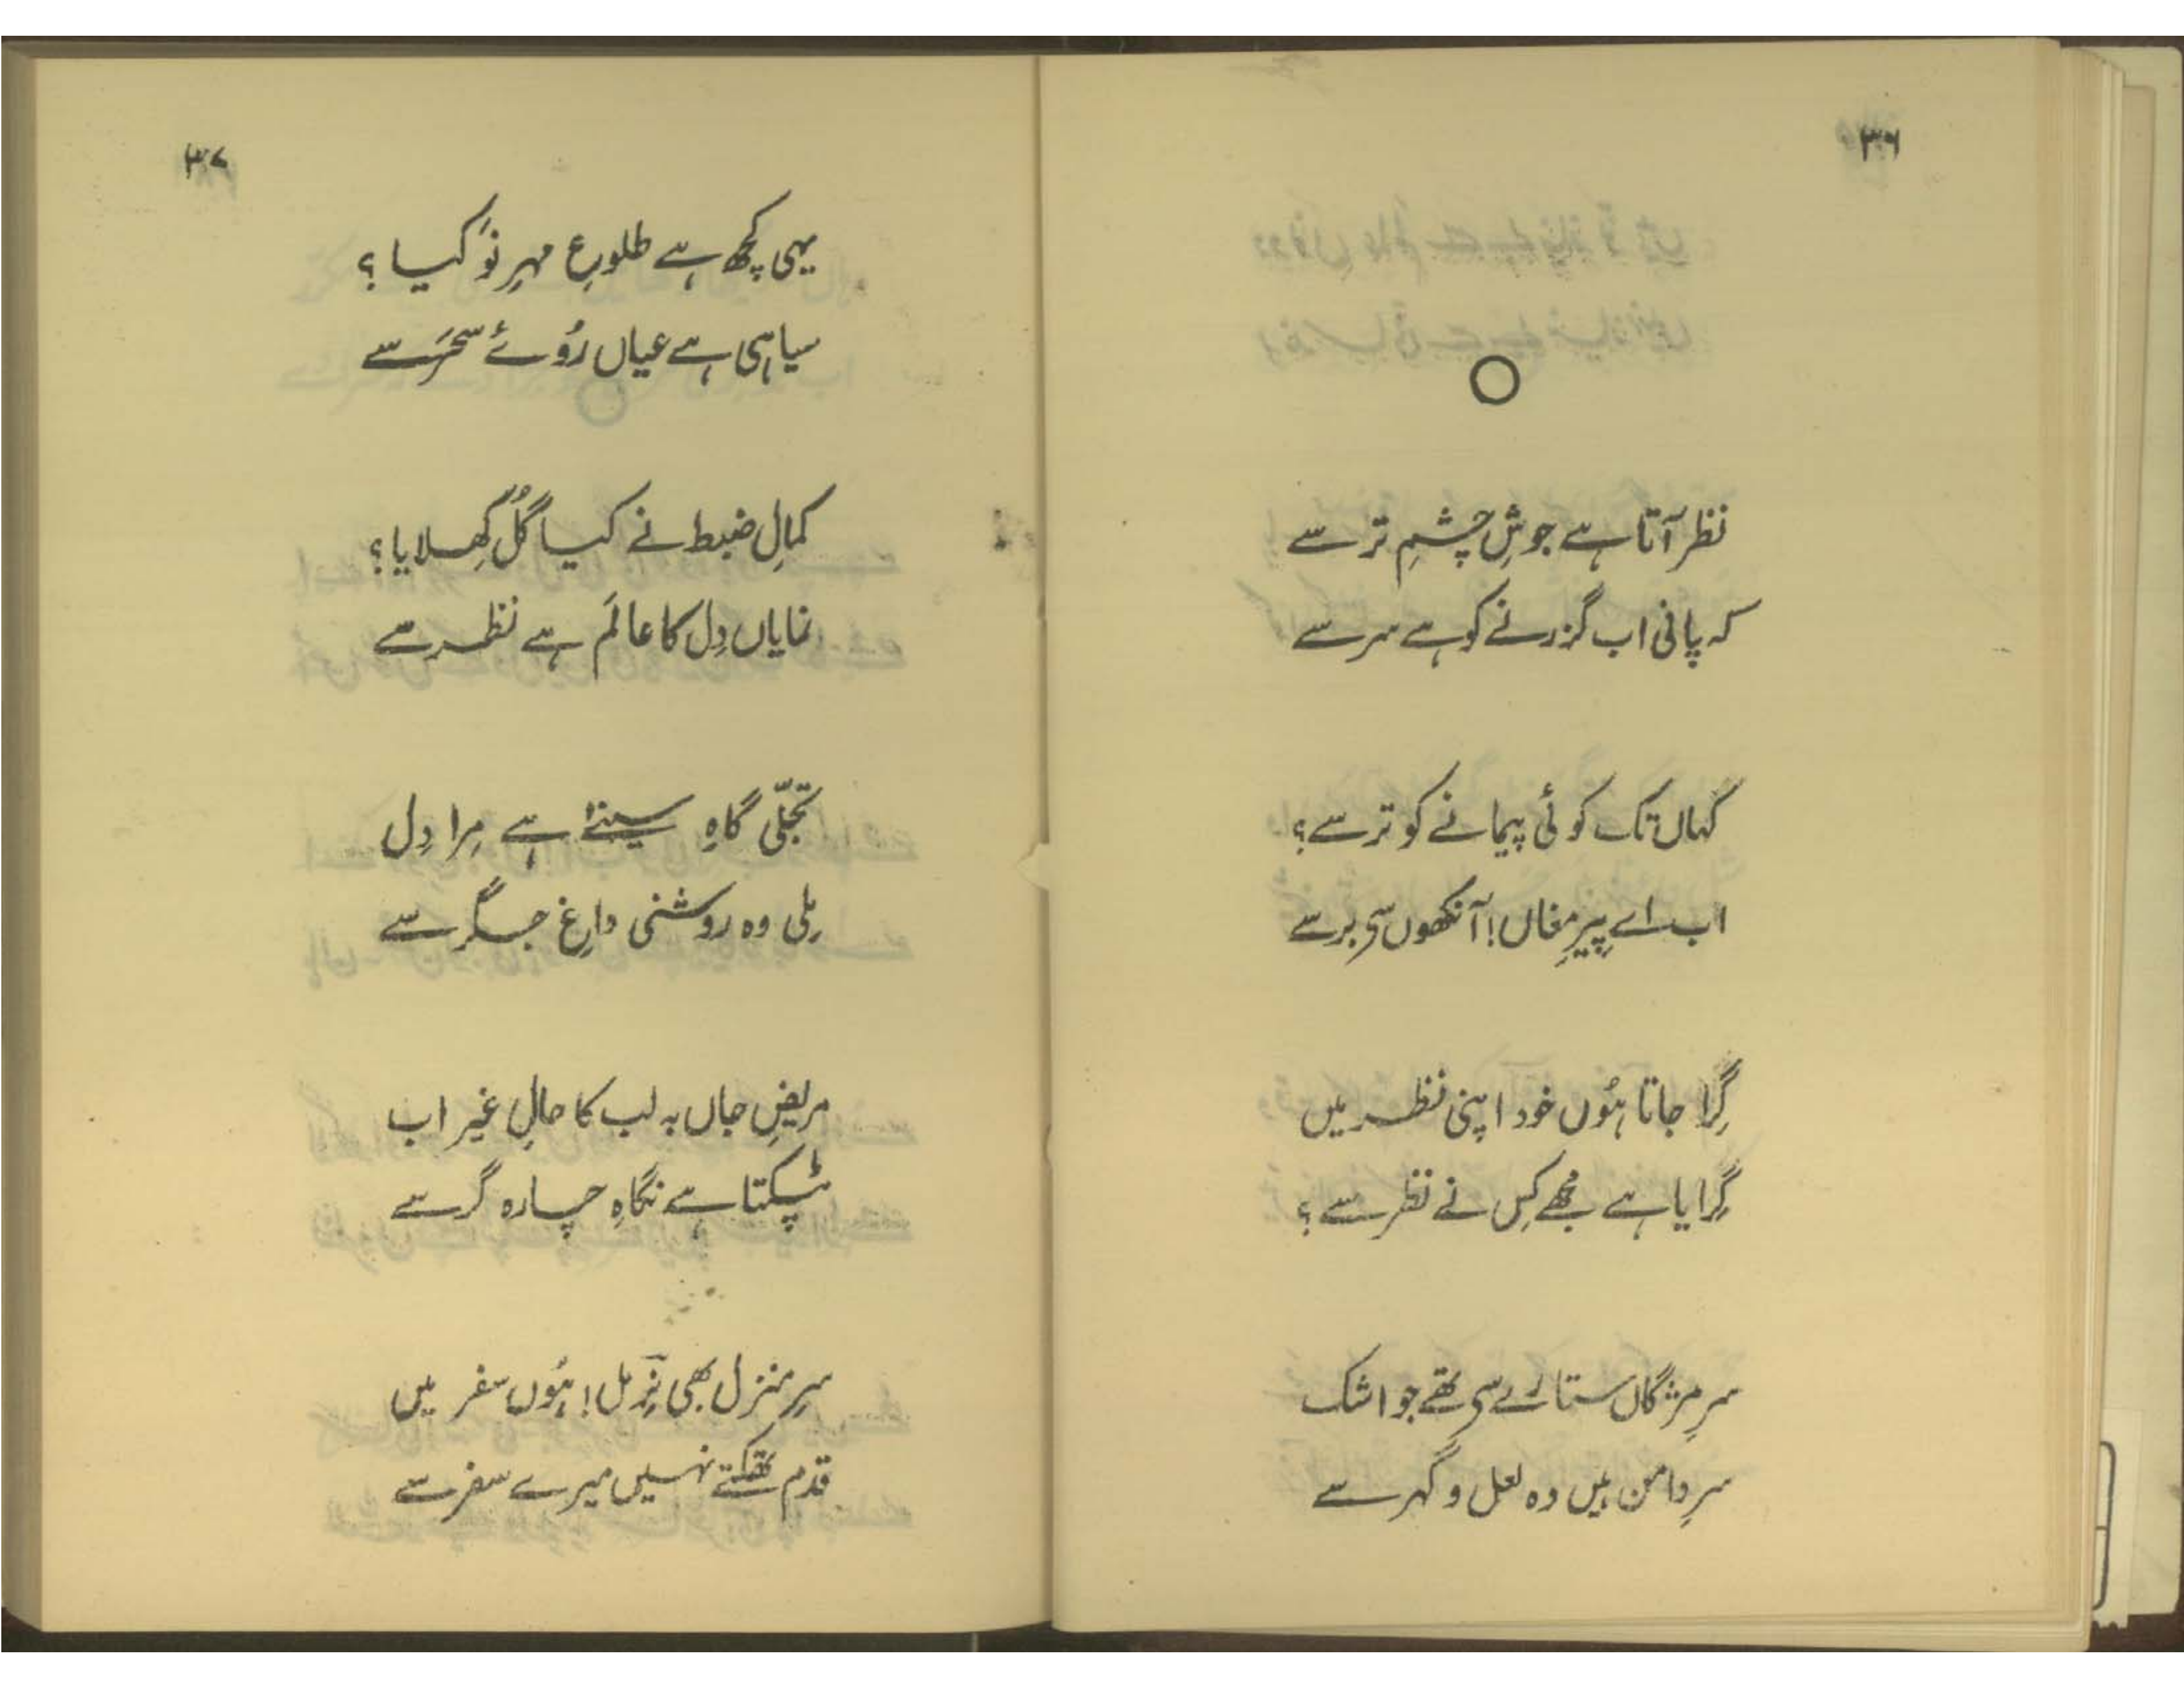 ۳۶
نظر آتا ہے جوشِ چشمِ تر سے
کہ پانی اب گزرنے کو ہے سر سے
کہاں تک کوئی پیمانے کو ترسے؟
اب اے پیرِ مغاں! آنکھوں سے برسے
گِرا جاتا ہُوں خود اپنی نظر میں
گِرایا ہے مجھے کِس نے نظر سے؟
سرِ مژگاں ستارے سے تھے جو اشک
سرِ دامن ہیں وہ لعل و گہر سے
۳۷
یہی کچھ ہے طلوعِ مہرِ نَو کیا؟
سیاہی ہے عیاں رُوئے سحَر سے
کمالِ ضبط نے کیا گُل کِھلایا؟
نمایاں دِل کا عالَم ہے نظر سے
تجلّی گاہِ سینہ ہے مِرا دِل
مِلی وہ روشنی داغِ جگر سے
مریضِ جاں بہ لب کا حالِ غیر اب
ٹپکتا ہے نگاہِ چارہ گر سے
سرِ منزل بھی نِرمل! ہُوں سفر میں
قدم تھکتے نہیں میرے سفر سے